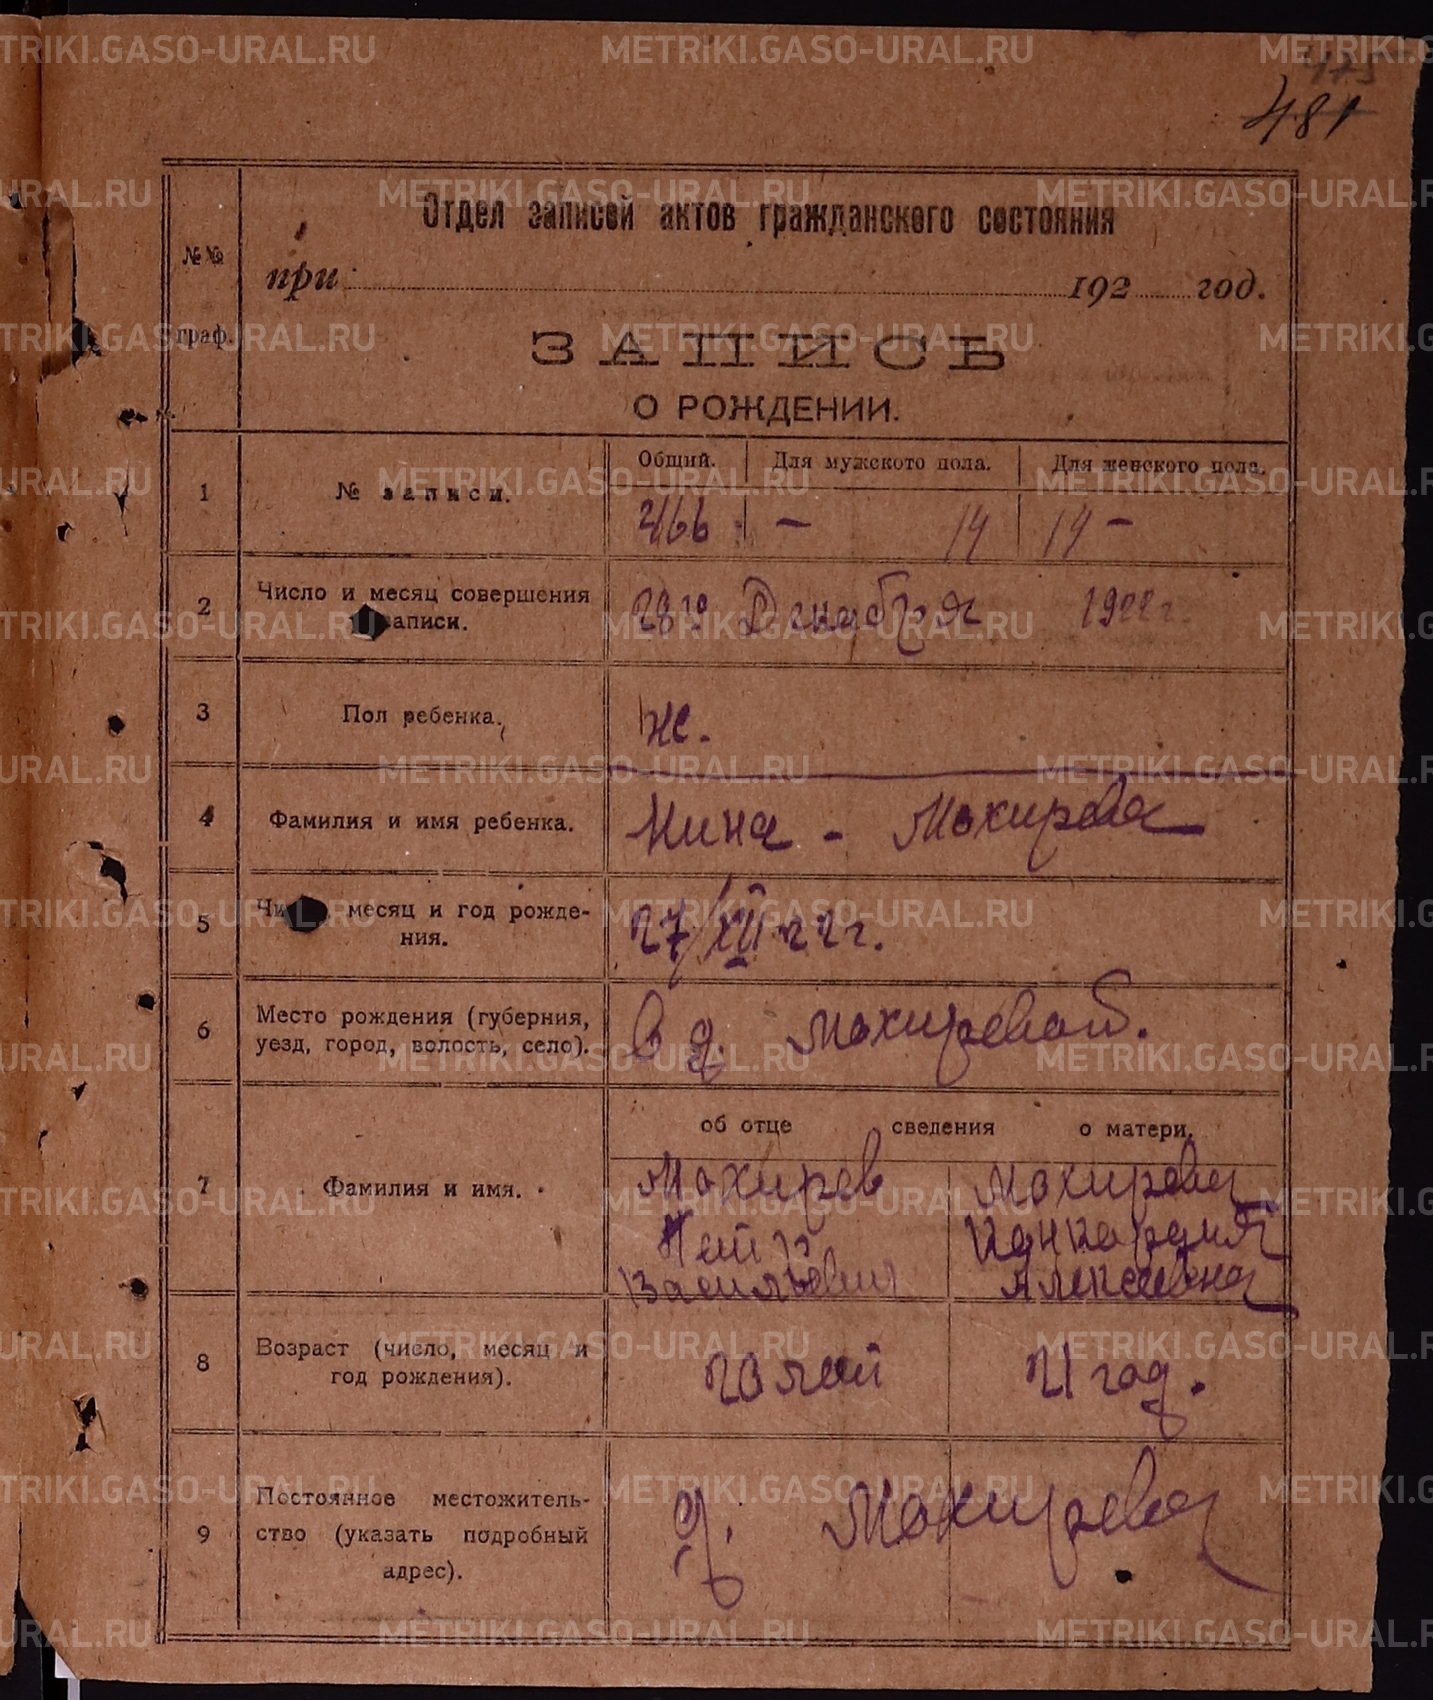 475
481
Отдел записей актов гражданского состояния
при 192 год.
№№ граф.
ЗАПИСЬ
О РОЖДЕНИИ.
Общий. Для мужского пола. Для женского пола.
1 № записи. 466 - 14 14 -
2 Число и месяц совершения
записи. 28го Декабря 1922 г.
3 Пол ребенка. Ж.
4 Фамилия и имя ребенка. Нина - Мокирева
5 Число, месяц и год рожде-
ния. 27/XII 22 г.
6 Место рождения (губерния,
уезд, город, волость, село). в д. Мокиревой.
об отце сведения о матери.
7 Фамилия и имя. Мокирев Мокирева
Петр Конкордия
Васильевич Алексеевна
8 Возраст (число, месяц и
год рождения). 20 лет 21 год.
9 Постоянное местожитель-
ство (указать подробный
адрес). д. Мокирева
METRIKI.GASO-URAL.RU